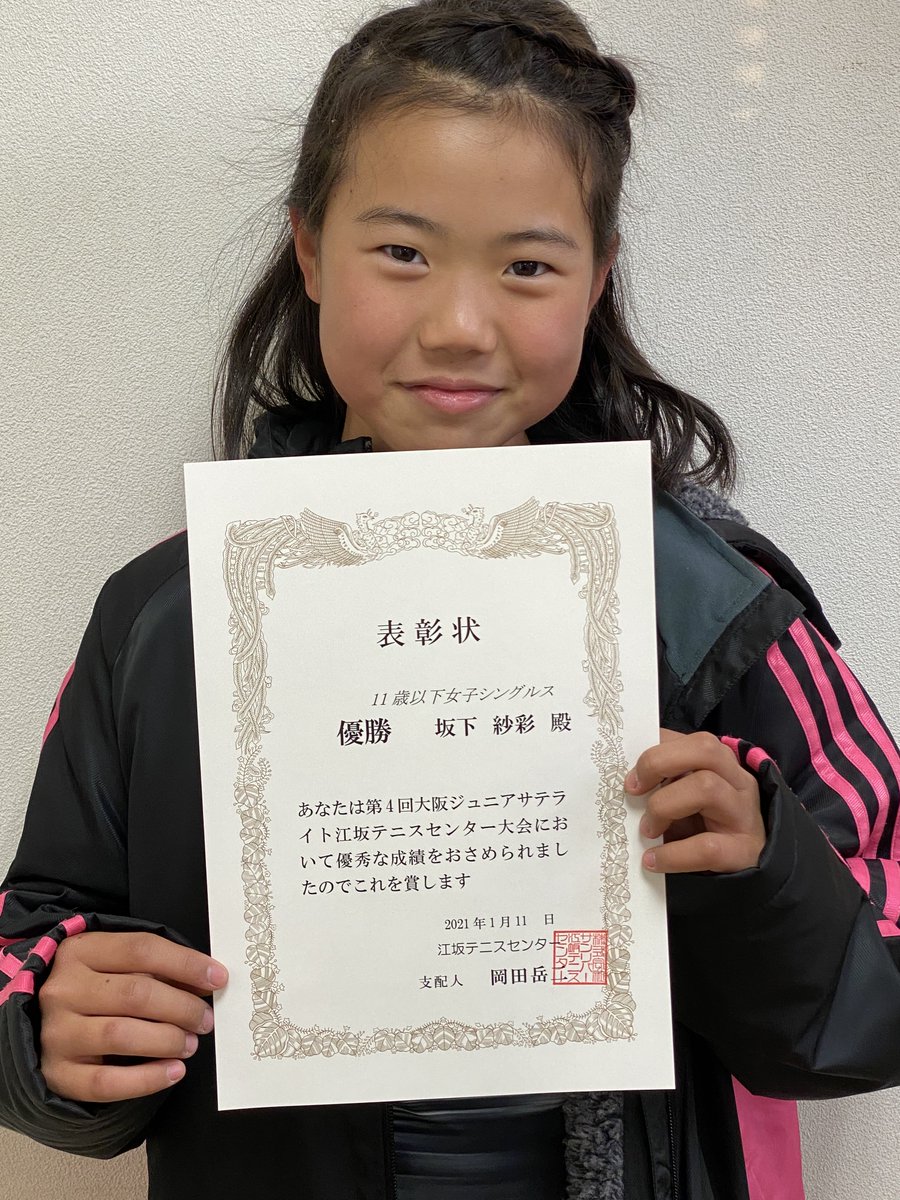 表彰状
11歳以下女子シングルス
優勝 坂下 紗彩 殿
あなたは第4回大阪ジュニアサテラ
イト江坂テニスセンター大会にお
いて優秀な成績をおさめられまし
たのでこれを賞します
2021年1月11 日
江坂テニスセンター
支配人 岡田岳